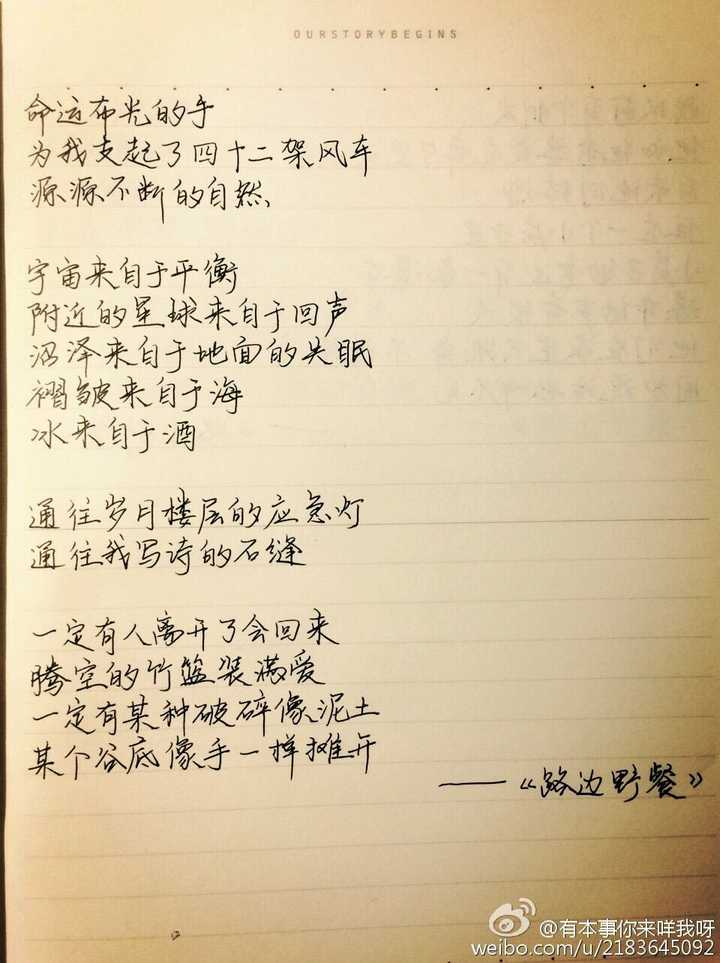 OURSTORYBEGINS
命运布光的手
为我支起了四十二架风车
源源不断的自然
宇宙来自于平衡
附近的星球来自于回声
沼泽来自于地面的失眠
褶皱来自于海
冰来自于酒
通往岁月楼层的应急灯
通往我写诗的石缝
一定有人离开了会回来
腾空的竹篮装满爱
一定有某种破碎像泥土
某个谷底像手一样摊开
——《路边野餐》
@有本事你来咩我呀
weibo.com/u/2183645092